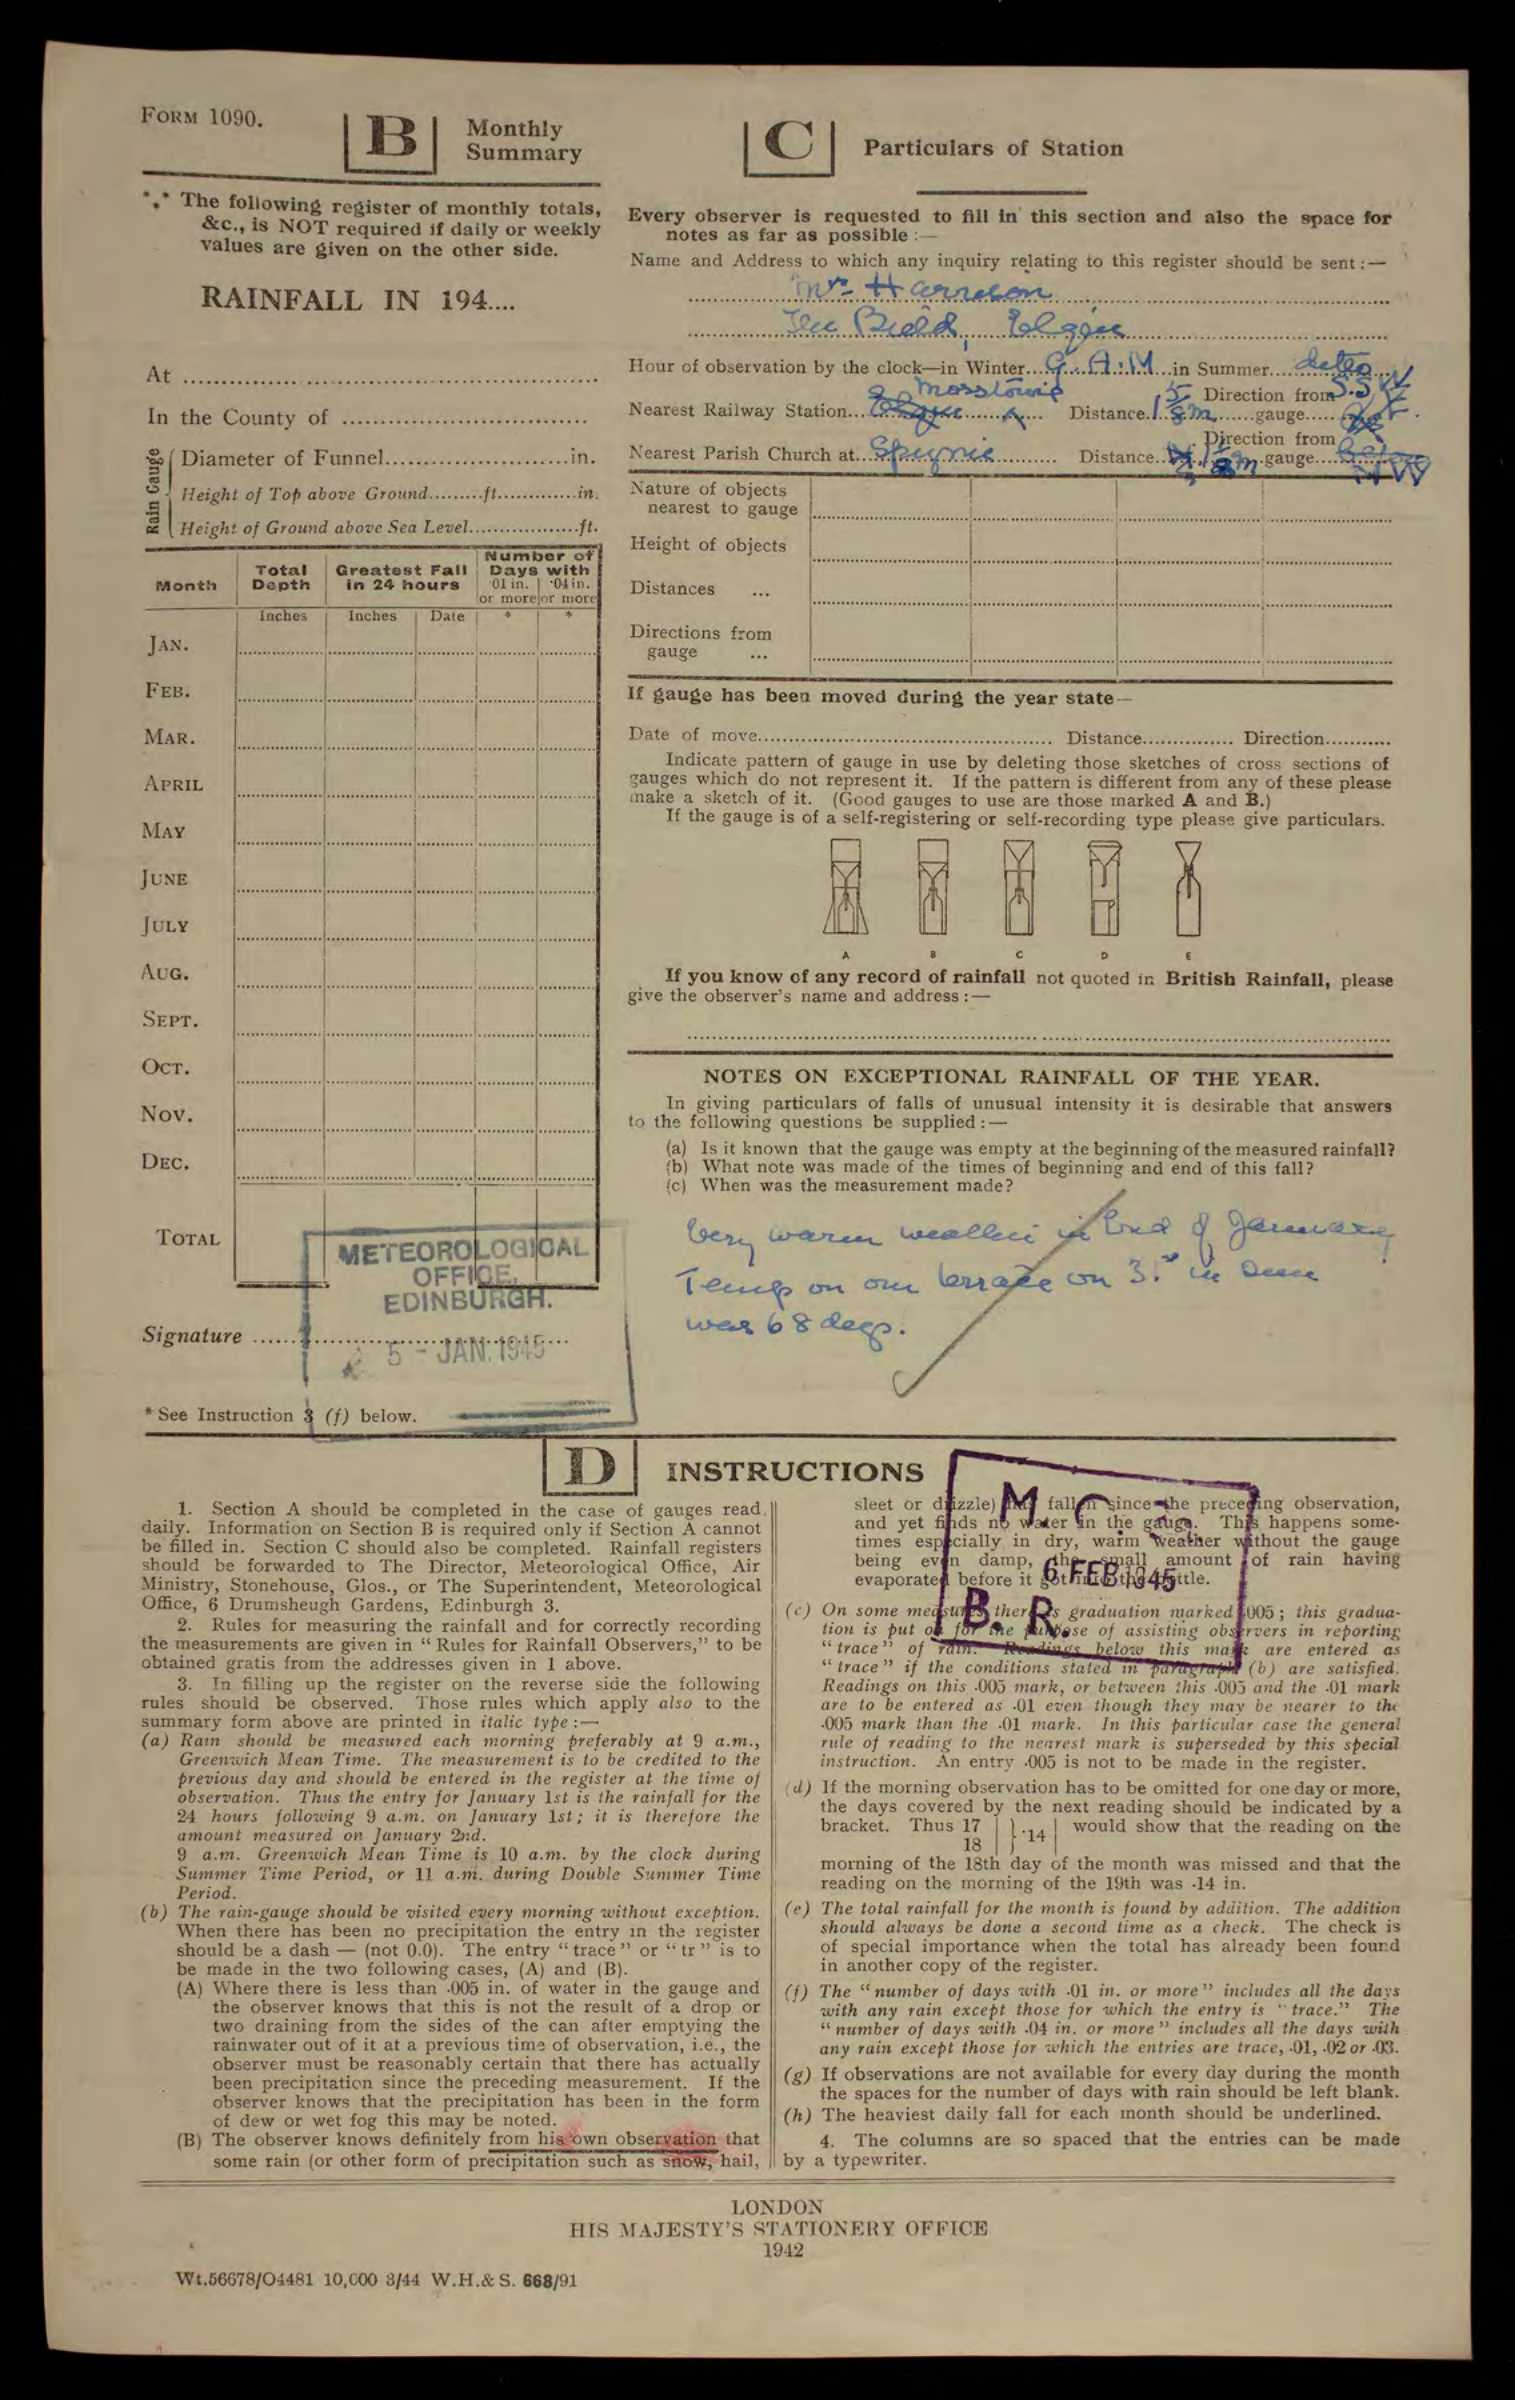 FORM 1090.
B Monthly
Summary
*,* The following register of monthly totals,
&c., is NOT required if daily or weekly
values are given on the other side.
RAINFALL IN 194....
At
In the County of
Rain Gauge
Diameter of Funnel in.
Height of Top above Ground ft. in.
Height of Ground above Sea Level ft.
Month Total Depth Greatest Fall in 24 hours Number of Days with
·01 in. or more ·04 in. or more
Inches Inches Date * *
JAN.
FEB.
MAR.
APRIL
MAY
JUNE
JULY
AUG.
SEPT.
OCT.
NOV.
DEC.
TOTAL
METEOROLOGICAL
OFFICE,
EDINBURGH.
Signature
5 - JAN. 1945
* See Instruction 3 (f) below.
C Particulars of Station
Every observer is requested to fill in this section and also the space for
notes as far as possible :—
Name and Address to which any inquiry relating to this register should be sent :—
Mrs Harrison
The Bield, Elgin
Hour of observation by the clock—in Winter 9. A. M in Summer ditto
Mosstowie S.S.W
Nearest Railway Station Distance 1 5/8 m Direction from gauge
Nearest Parish Church at Spynie Distance m Direction from gauge
Nature of objects
nearest to gauge
Height of objects
Distances ...
Directions from
gauge ...
If gauge has been moved during the year state—
Date of move Distance Direction
Indicate pattern of gauge in use by deleting those sketches of cross sections of
gauges which do not represent it. If the pattern is different from any of these please
make a sketch of it. (Good gauges to use are those marked A and B.)
If the gauge is of a self-registering or self-recording type please give particulars.
A B C D E
If you know of any record of rainfall not quoted in British Rainfall, please
give the observer's name and address :—
NOTES ON EXCEPTIONAL RAINFALL OF THE YEAR.
In giving particulars of falls of unusual intensity it is desirable that answers
to the following questions be supplied :—
(a) Is it known that the gauge was empty at the beginning of the measured rainfall?
(b) What note was made of the times of beginning and end of this fall?
(c) When was the measurement made?
Very warm weather in End of January
Temp on our terrace on 31st in Sun
was 68 degs.
D INSTRUCTIONS
1. Section A should be completed in the case of gauges read
daily. Information on Section B is required only if Section A cannot
be filled in. Section C should also be completed. Rainfall registers
should be forwarded to The Director, Meteorological Office, Air
Ministry, Stonehouse, Glos., or The Superintendent, Meteorological
Office, 6 Drumsheugh Gardens, Edinburgh 3.
2. Rules for measuring the rainfall and for correctly recording
the measurements are given in “ Rules for Rainfall Observers,” to be
obtained gratis from the addresses given in 1 above.
3. In filling up the register on the reverse side the following
rules should be observed. Those rules which apply also to the
summary form above are printed in italic type :—
(a) Rain should be measured each morning preferably at 9 a.m.,
Greenwich Mean Time. The measurement is to be credited to the
previous day and should be entered in the register at the time of
observation. Thus the entry for January 1st is the rainfall for the
24 hours following 9 a.m. on January 1st ; it is therefore the
amount measured on January 2nd.
9 a.m. Greenwich Mean Time is 10 a.m. by the clock during
Summer Time Period, or 11 a.m. during Double Summer Time
Period.
(b) The rain-gauge should be visited every morning without exception.
When there has been no precipitation the entry in the register
should be a dash — (not 0.0). The entry “ trace ” or “ tr ” is to
be made in the two following cases, (A) and (B).
(A) Where there is less than ·005 in. of water in the gauge and
the observer knows that this is not the result of a drop or
two draining from the sides of the can after emptying the
rainwater out of it at a previous time of observation, i.e., the
observer must be reasonably certain that there has actually
been precipitation since the preceding measurement. If the
observer knows that the precipitation has been in the form
of dew or wet fog this may be noted.
(B) The observer knows definitely from his own observation that
some rain (or other form of precipitation such as snow, hail,
sleet or drizzle) has fallen since the preceding observation,
and yet finds no water in the gauge. This happens some-
times especially in dry, warm weather without the gauge
being even damp, the small amount of rain having
evaporated before it got into the bottle.
M. C.
6 FEB 1945
B. R.
(c) On some measures there is graduation marked ·005 ; this gradua-
tion is put on for the purpose of assisting observers in reporting
“ trace ” of rain. Readings below this mark are entered as
“ trace ” if the conditions stated in paragraph (b) are satisfied.
Readings on this ·005 mark, or between this ·005 and the ·01 mark
are to be entered as ·01 even though they may be nearer to the
·005 mark than the ·01 mark. In this particular case the general
rule of reading to the nearest mark is superseded by this special
instruction. An entry ·005 is not to be made in the register.
(d) If the morning observation has to be omitted for one day or more,
the days covered by the next reading should be indicated by a
bracket. Thus 17 18 } ·14 would show that the reading on the
morning of the 18th day of the month was missed and that the
reading on the morning of the 19th was ·14 in.
(e) The total rainfall for the month is found by addition. The addition
should always be done a second time as a check. The check is
of special importance when the total has already been found
in another copy of the register.
(f) The “ number of days with ·01 in. or more ” includes all the days
with any rain except those for which the entry is “ trace.” The
“ number of days with ·04 in. or more ” includes all the days with
any rain except those for which the entries are trace, ·01, ·02 or ·03.
(g) If observations are not available for every day during the month
the spaces for the number of days with rain should be left blank.
(h) The heaviest daily fall for each month should be underlined.
4. The columns are so spaced that the entries can be made
by a typewriter.
LONDON
HIS MAJESTY'S STATIONERY OFFICE
1942
Wt.56678/O4481 10,000 3/44 W.H.& S. 668/91